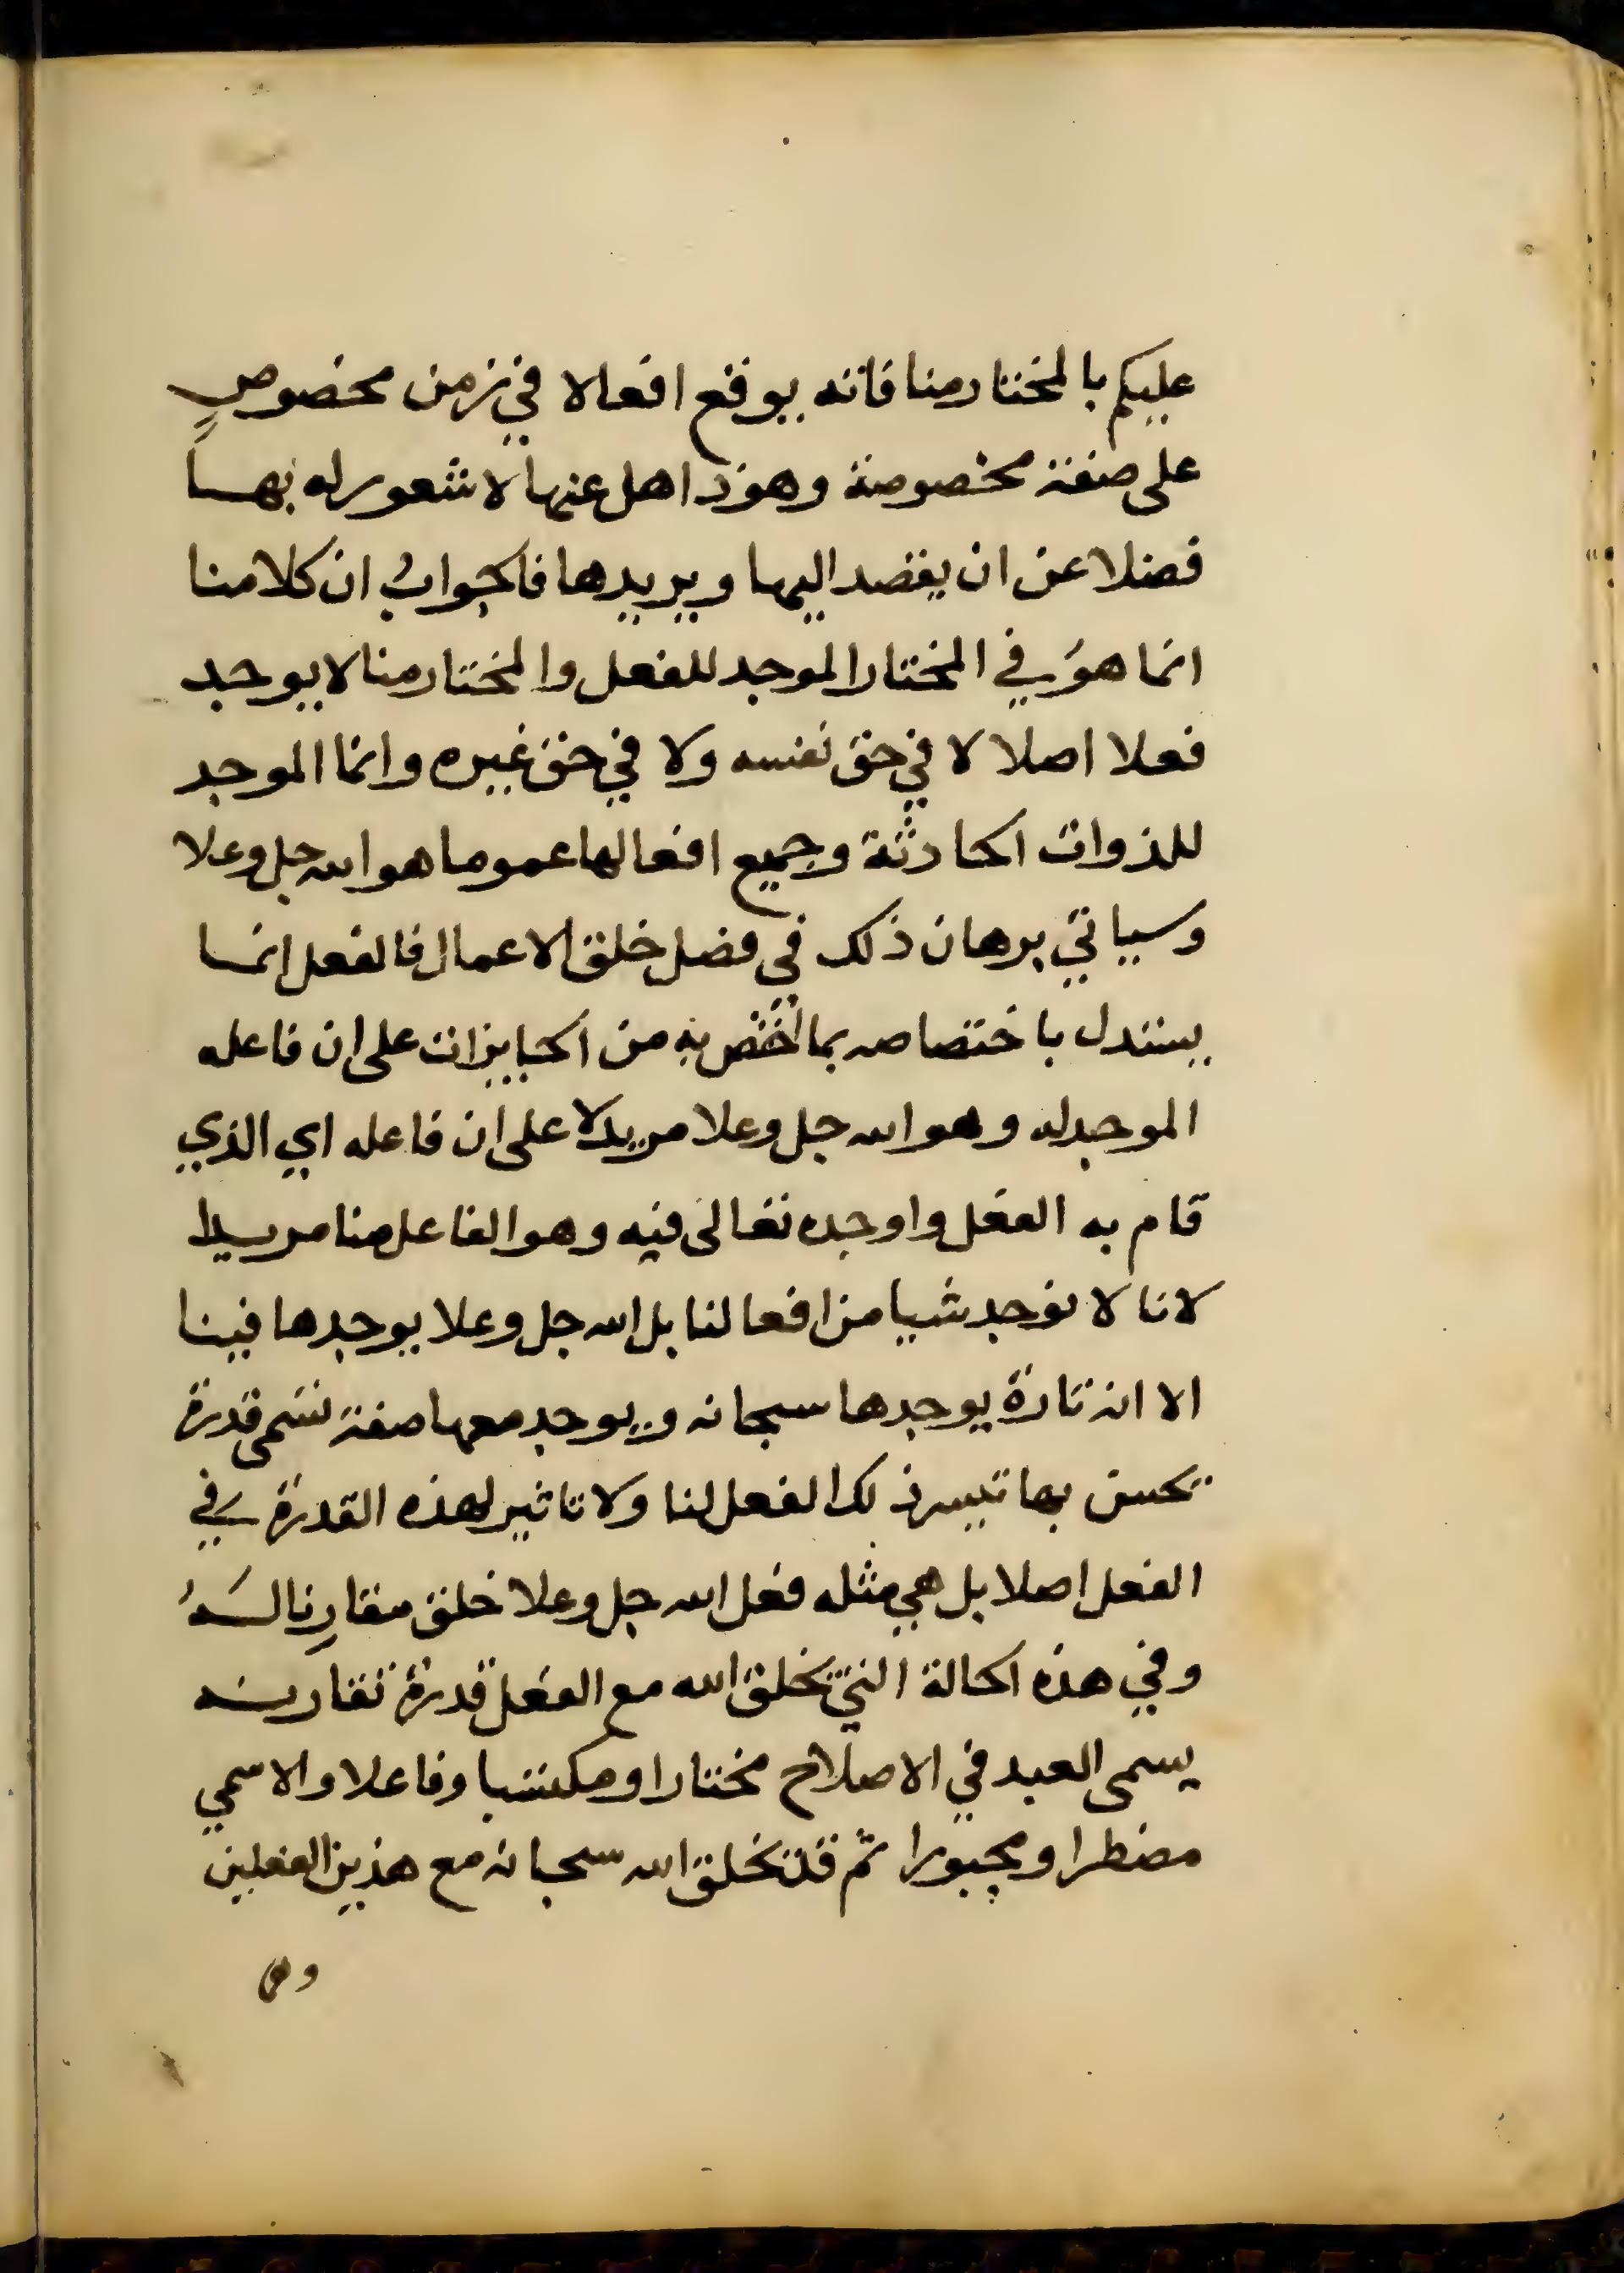 عليكم بالمختار منا فانه يوقع افعالا في زمن مخصوصٍ
على صفة مخصوصة وهو ذاهل عنها لا شعور له بها
فضلا عن ان يقصد اليها ويريدها فالجواب ان كلامنا
انما هو في المختار الموجد للفعل والمختار منا لا يوجد
فعلا اصلا لا في حق نفسه ولا في حق غيره وانما الموجد
للذوات الحادثة وجميع افعالها عموما هو الله جل وعلا
وسياتي برهان ذلك في فصل خلق الاعمال فالفعل انما
يستدل باختصاصه بما اختص به من الجايزات على ان فاعله
الموجد له وهو الله جل وعلا مريد لا على ان فاعله اي الذي
قام به الفعل واوجده تعالى فيه وهو الفاعل منا مريد
لانا لا نوجد شيا من افعالنا بل الله جل وعلا يوجدها فينا
الا انه تارة يوجدها سبحانه ويوجد معها صفة تسمى قدرة
تحسن بها تيسر ذلك الفعل لنا ولا تاثير لهذه القدرة في
الفعل اصلا بل هي مثله فعل الله جل وعلا خلق مقارنا لَهُ
وفي هذه الحالة التي يخلق الله مع الفعل قدرة تقارنه
يسمى العبد في الاصلاح مختارا ومكتسبا وفاعلا والا سمي
مضطرا ومجبورا ثم قد يخلق الله سبحانه مع هذين الفعلين